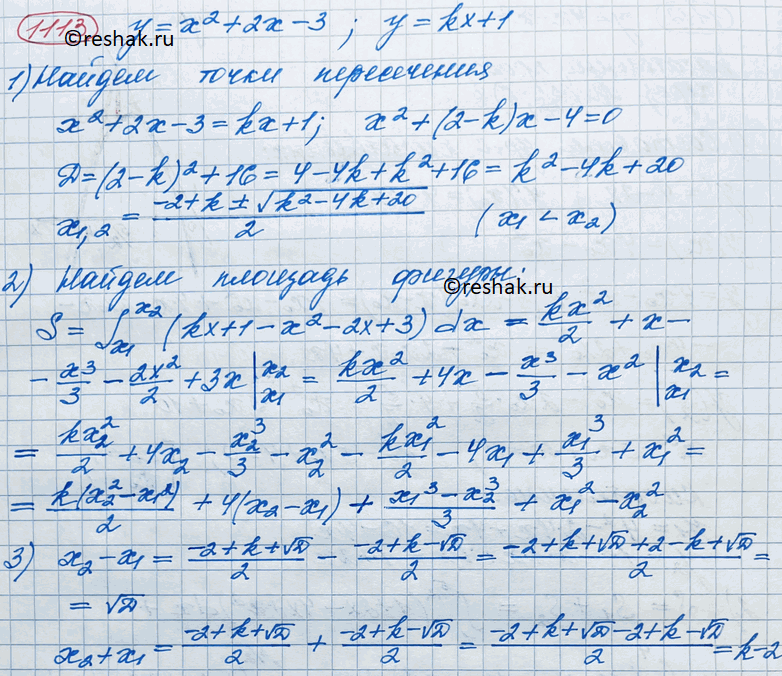 1113 y = x² + 2x – 3 ; y = kx + 1
©reshak.ru
1) Найдем точки пересечения
x² + 2x – 3 = kx + 1; x² + (2 – k)x – 4 = 0
D = (2 – k)² + 16 = 4 – 4k + k² + 16 = k² – 4k + 20
x₁,₂ = (–2 + k ± √(k² – 4k + 20))/2 (x₁ < x₂)
2) Найдем площадь фигуры:
©reshak.ru
S = ∫_{x₁}^{x₂} (kx + 1 – x² – 2x + 3) dx = kx²/2 + x –
– x³/3 – 2x²/2 + 3x |_{x₁}^{x₂} = kx²/2 + 4x – x³/3 – x² |_{x₁}^{x₂} =
= kx₂²/2 + 4x₂ – x₂³/3 – x₂² – kx₁²/2 – 4x₁ + x₁³/3 + x₁² =
= k(x₂² – x₁²)/2 + 4(x₂ – x₁) + (x₁³ – x₂³)/3 + x₁² – x₂²
3) x₂ – x₁ = (–2 + k + √D)/2 – (–2 + k – √D)/2 = (–2 + k + √D + 2 – k + √D)/2 =
= √D
x₂ + x₁ = (–2 + k + √D)/2 + (–2 + k – √D)/2 = (–2 + k + √D – 2 + k – √D)/2 = k – 2